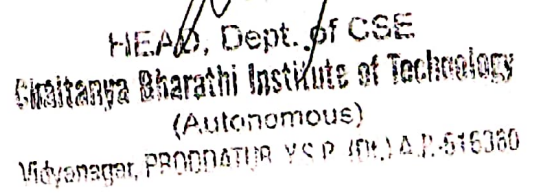 HEAD, Dept. of CSE
Chaitanya Bharathi Institute of Technology
(Autonomous)
Vidyanagar, PRODDATUR Y.S.R. (Dt.) A.P.-516360